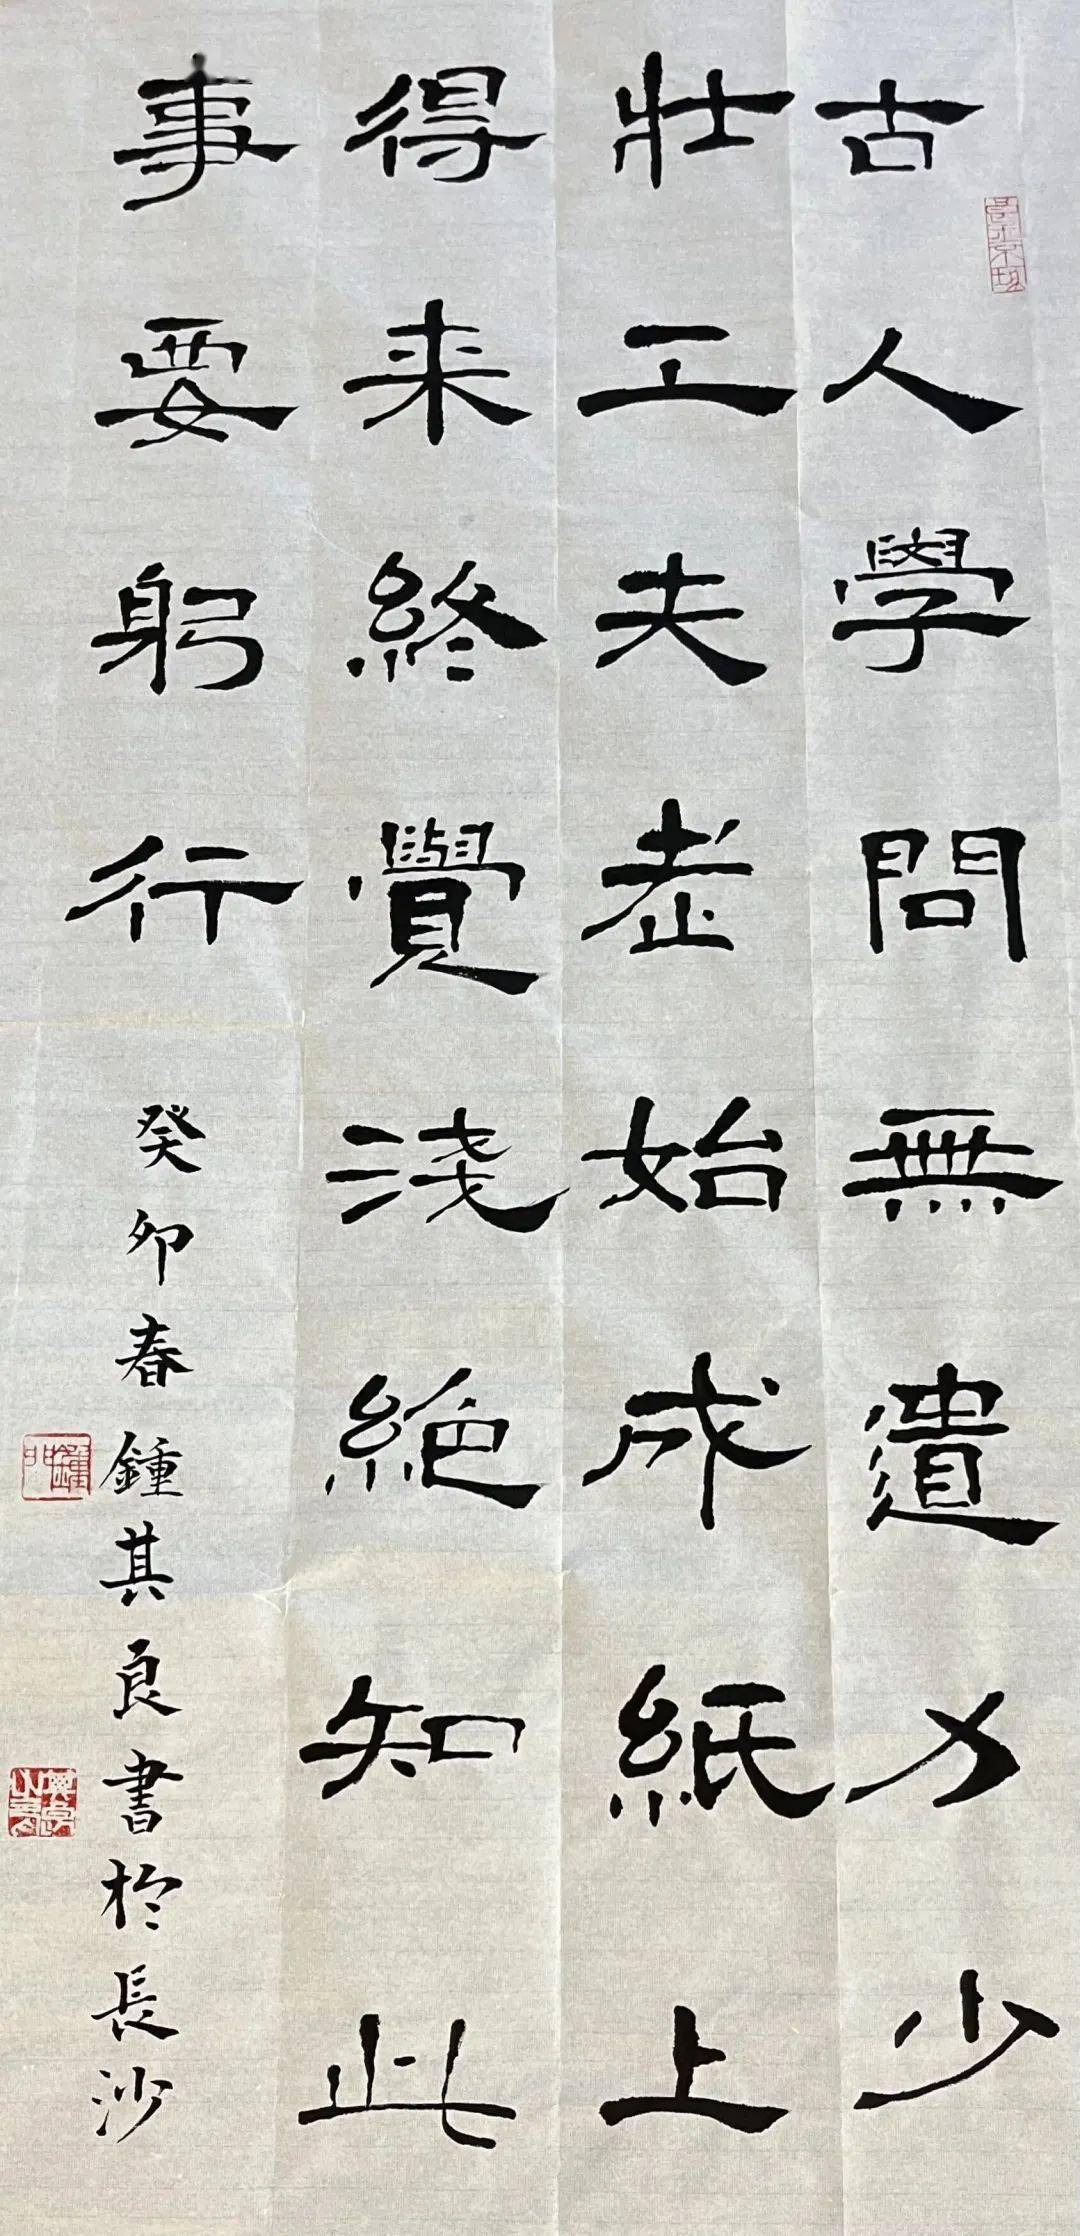 古人學問無遺力少
壯工夫老始成紙上
得来終覺淺絕知此
事要躬行
癸卯春鍾其良書於長沙